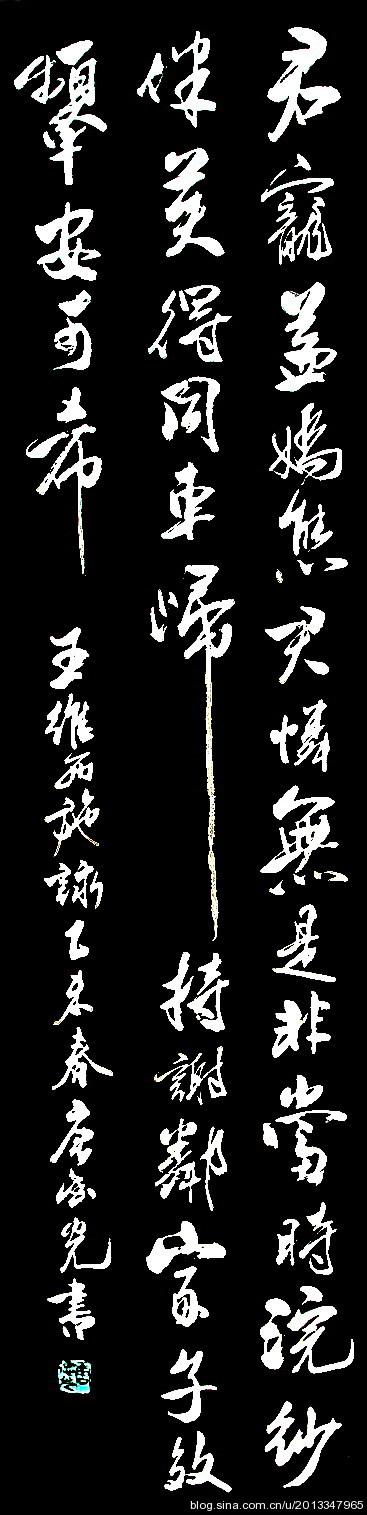 君寵益嬌態君憐無是非當時浣紗
伴莫得同車歸持謝鄰家子效
顰安可希
王維西施詠乙未春唐
光書
blog.sina.com.cn/u/2013347965